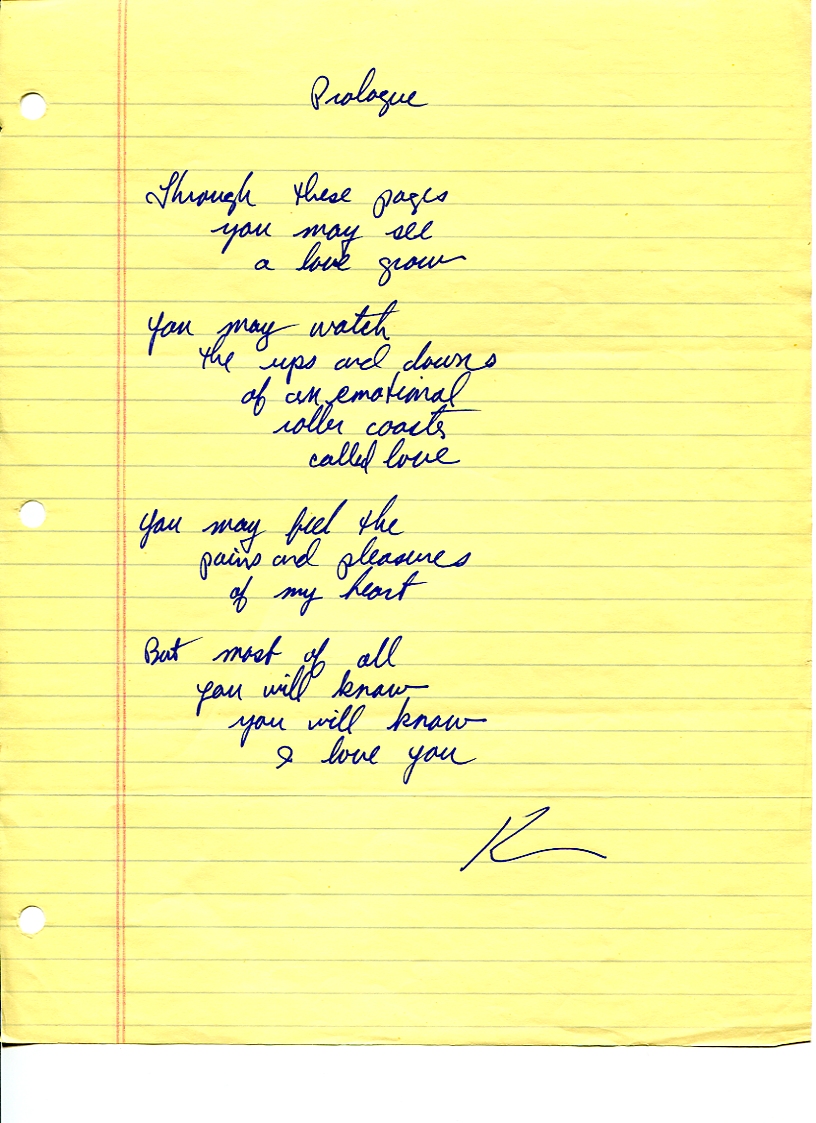 Prologue
Through these pages
you may see
a love grow
You may watch
the ups and downs
of an emotional
roller coaster
called love
You may feel the
pains and pleasures
of my heart
But most of all
you will know
you will know
I love you
K